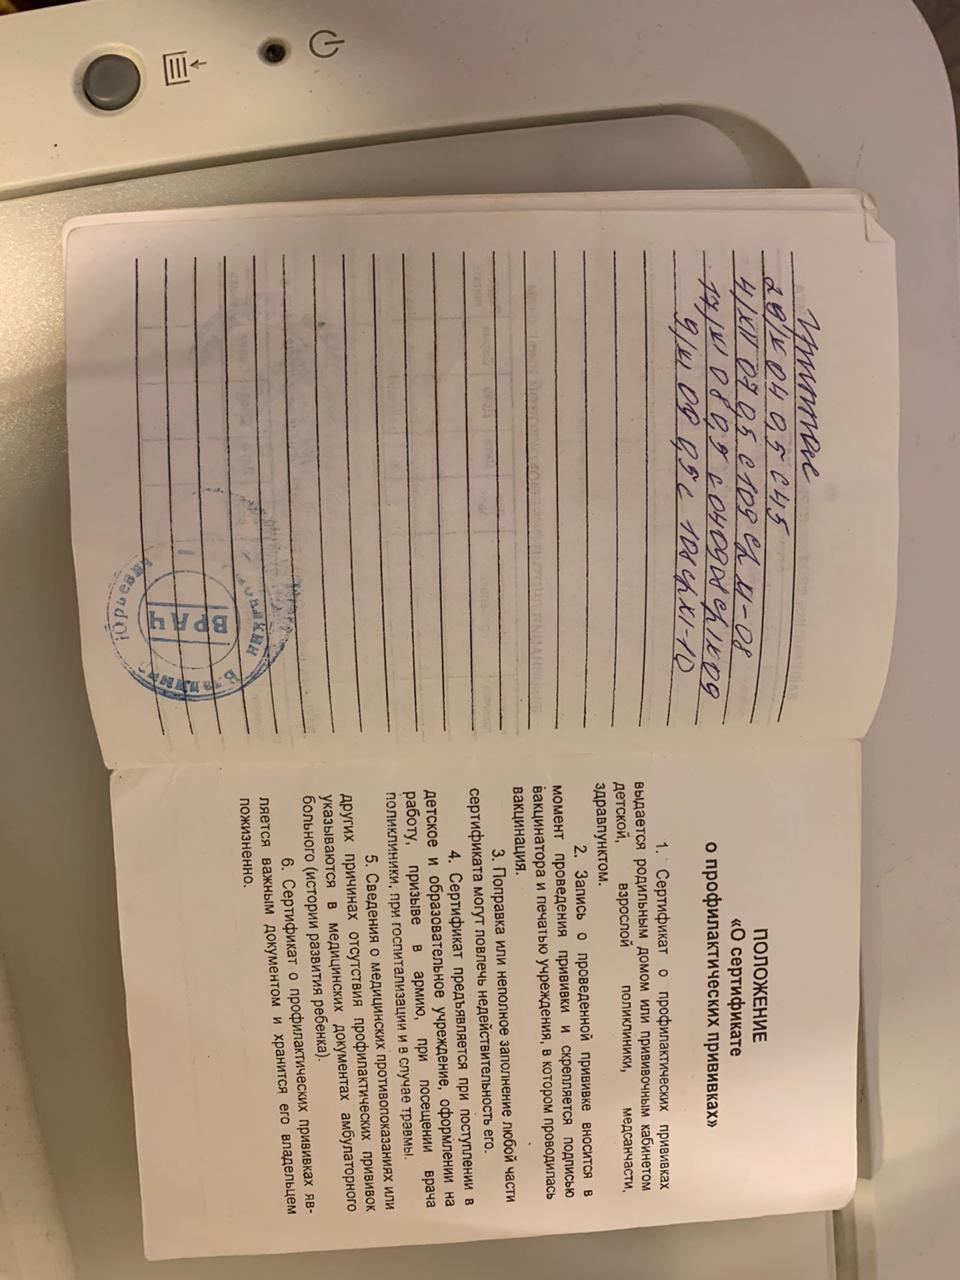 28/X 04 0,5 с 45
4/XII 07 0,5 с 109 с/г XI-08
17/XI 08 0,5 с 040908 с/г IX 09
9/XI 09 0,5 с 108 с/г XI-10
ВРАЧ
Юрьевич
Владимир
ПОЛОЖЕНИЕ
«О сертификате
о профилактических прививках»
1. Сертификат о профилактических прививках
выдается родильным домом или прививочным кабинетом
детской, взрослой поликлиники, медсанчасти,
здравпунктом.
2. Запись о проведенной прививке вносится в
момент проведения прививки и скрепляется подписью
вакцинатора и печатью учреждения, в котором проводилась
вакцинация.
3. Поправка или неполное заполнение любой части
сертификата могут повлечь недействительность его.
4. Сертификат предъявляется при поступлении в
детское и образовательное учреждение, оформлении на
работу, призыве в армию, при посещении врача
поликлиники, при госпитализации и в случае травмы.
5. Сведения о медицинских противопоказаниях или
других причинах отсутствия профилактических прививок
указываются в медицинских документах амбулаторного
больного (истории развития ребенка).
6. Сертификат о профилактических прививках яв-
ляется важным документом и хранится его владельцем
пожизненно.